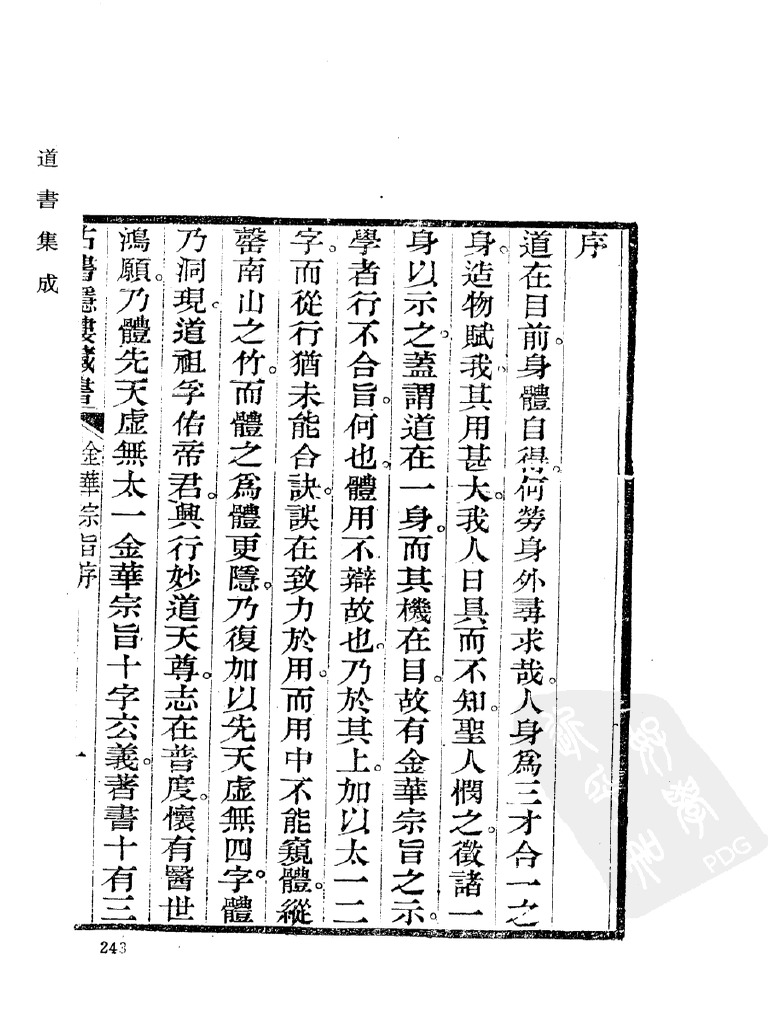 道書集成
序
道在目前。身體自得。何勞身外尋求哉。人身爲三才合一之
身。造物賦我。其用甚大。我人日具而不知。聖人憫之。徵諸一
身以示之。蓋謂道在一身。而其機在目。故有金華宗旨之示。
學者行不合旨。何也。體用不辯故也。乃於其上。加以太一二
字。而從行猶未能合訣。誤在致力於用。而用中不能窺體。縱
罄南山之竹。而體之爲體更隱。乃復加以先天虛無四字。體
乃洞現。道祖孚佑帝君。興行妙道天尊。志在普度。懷有醫世
鴻願。乃體先天虛無太一金華宗旨十字玄義。著書十有三
古書隱樓藏書
金華宗旨序
一
243
PDG